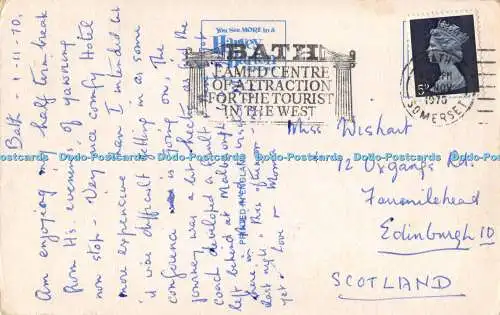 Bath - 1-III-70.
Am enjoying my half term break
from His evenings of yawning
non stop - Very nice comfy Hotel
more expensive than I intended but
it was difficult settling in as some
conference is going on, the
journey was a bit hectic as first the
coach developed a fault
left behind at Marlborough
here in this
last night. This afternoon
yet - Love
You See MORE in a
BATH
FAMED CENTRE
OF ATTRACTION
FOR THE TOURIST
IN THE WEST
1970
SOMERSET
5D
Miss Wishart
12 Oxgangs Rd.
Fairmilehead
Edinburgh 10
SCOTLAND
PRINTED IN ENGLAND
Dodo-Postcards Dodo-Postcards Dodo-Postcards Dodo-Postcards Dodo-Postcards